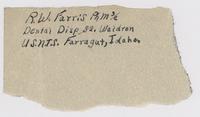 R.W. Farris P.M.3/c
Dental Disp. 52. Waldron
U.S.N.T.S. Farragut, Idaho.